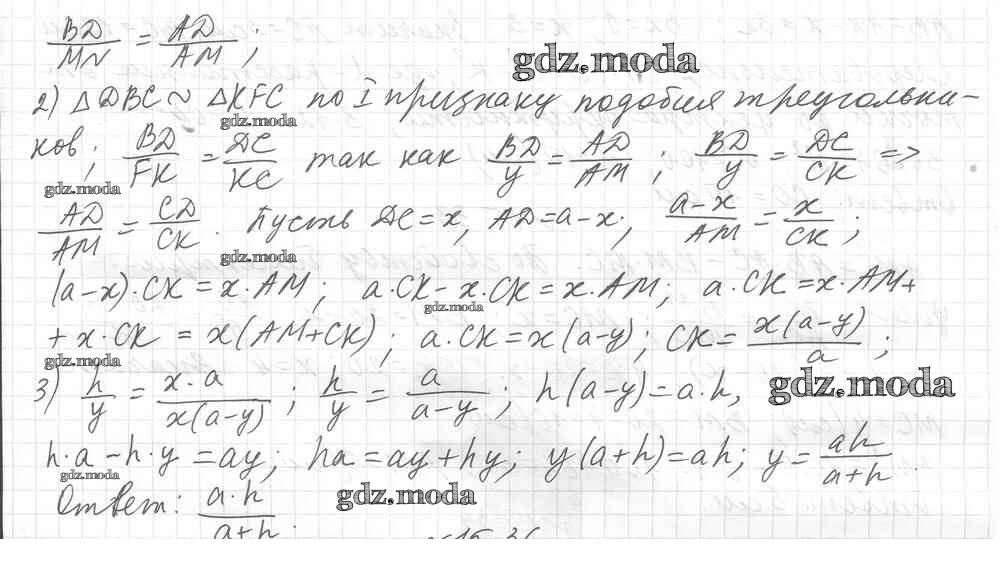 BD/MN = AD/AM ;
gdz.moda
2) △DBC ~ △KFC по I признаку подобия треугольни-
gdz.moda
ков; BD/FK = DC/KC так как BD/y = AD/AM ; BD/y = DC/CK =>
gdz.moda
AD/AM = CD/CK . Пусть DC = x, AD = a-x; (a-x)/AM = x/CK ;
gdz.moda
(a-x)·CK = x·AM; a·CK - x·CK = x·AM; a·CK = x·AM+
gdz.moda
+ x·CK = x(AM+CK); a·CK = x(a-y); CK = x(a-y)/a ;
gdz.moda
3) h/y = x·a/x(a-y) ; h/y = a/(a-y) ; h(a-y) = a·h,
gdz.moda
h·a - h·y = ay; ha = ay + hy; y(a+h) = ah; y = ah/(a+h) .
gdz.moda
Ответ: a·h/(a+h) .
gdz.moda